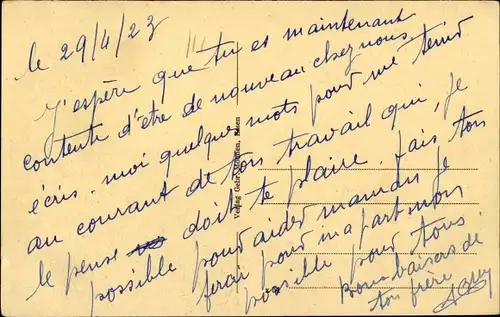 le 29/4/23
J'espère que tu es maintenant
contente d'être de nouveau chez nous
écris-moi quelques mots pour me tenir
au courant de ton travail qui, je
le pense doit te plaire. fais ton
possible pour aider maman je
ferai pour ma part mon
possible pour tous.
bons baisers de
ton frère
Verlag Gebr. Essen